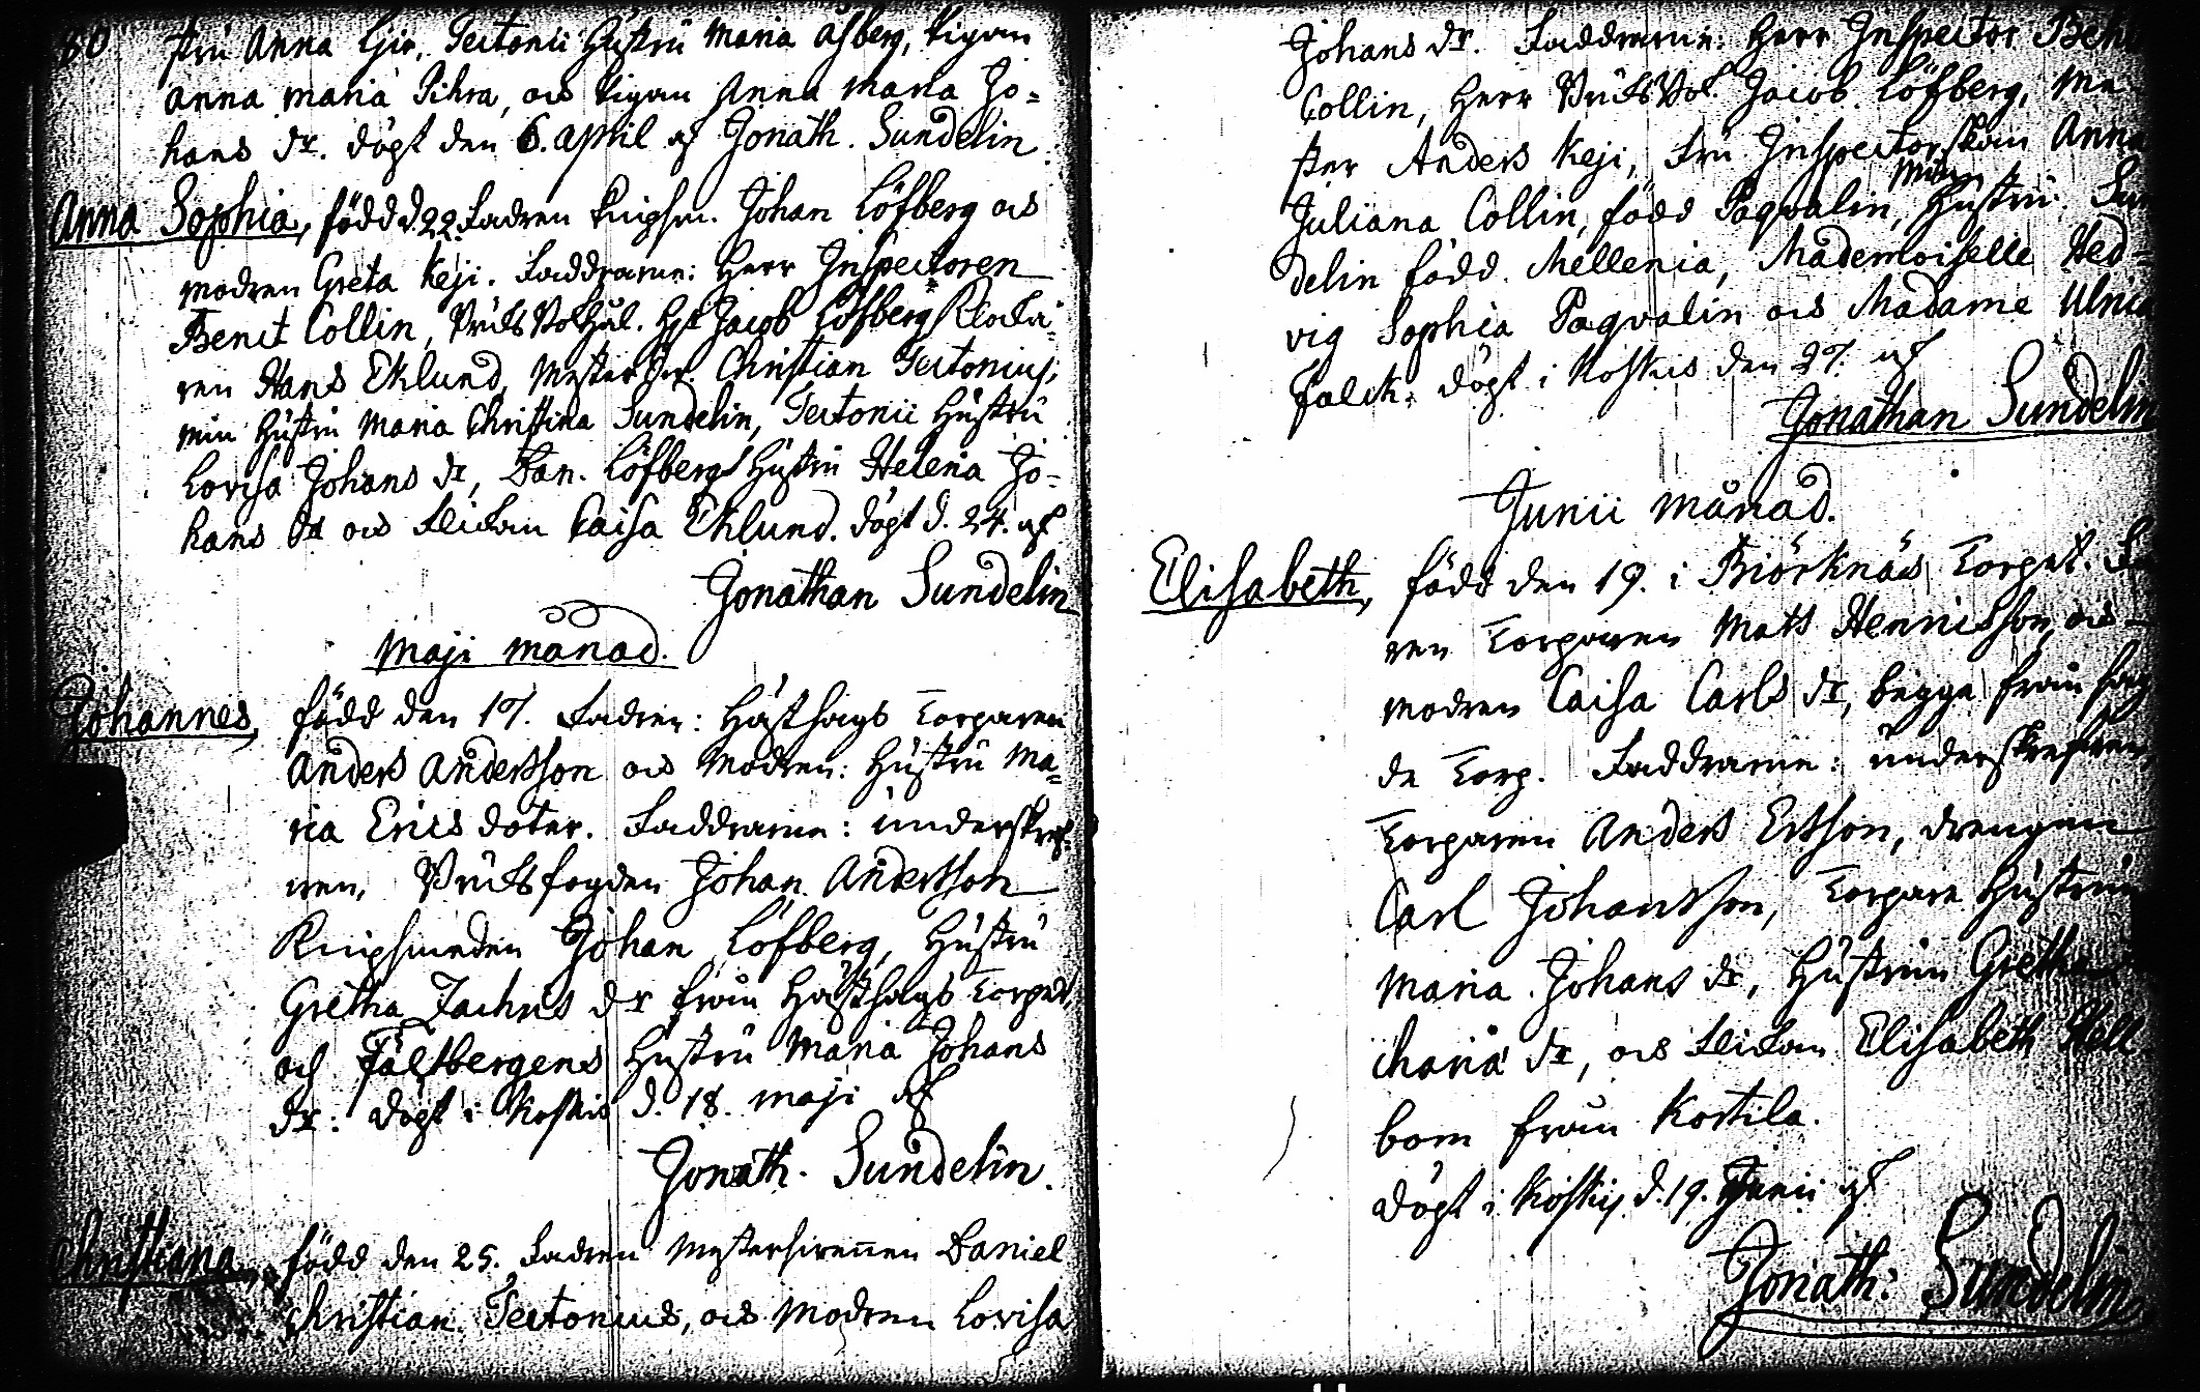 80
stru Anna Giv. Tectonii Hustru Maria Åsberg, Pigan
Anna Maria Pihra, och Pigan Anna Maria Jo=
hans dr. döpt den 6. April af Jonath. Sundelin.
Anna Sophia, född d. 22. Fadren Knipsm. Johan Löfberg och
modren Greta Keji. Faddrarne: Herr Inspectoren
Benct Collin, Bruks Jacob Löfberg Klocka=
ren Hans Eklund, Mester Christian Tectonius,
min Hustru Maria Christina Sundelin, Tectonii Hustru
Lovisa Johans dr, Dan. Löfbergs Hustru Helena Jo=
hans dr och Flickan Caisa Eklund. döpt d. 24. af
Jonathan Sundelin
Maji månad.
Johannes, född den 17. Fadren: Hästhags Torparen
Anders Andersson och Modren: Hustru Ma=
ria Erics doter. Faddrarne: underskref=
nen, Bruksfogden Johan Andersson
Knipsmeden Johan Löfberg, Hustru
Gretha Zachris dr från Hästhags Torpet,
och Fältbergens Hustru Maria Johans
dr: döpt i Koskis d. 18. Maji af
Jonath. Sundelin.
Christiana, född den 25. Fadren Daniel
Christian Tectonius, och Modren Lovisa
Johans dr. Faddrarne: Herr Inspector
Collin, Herr Bruks Jacob Löfberg, Mä
ster Anders Keji, Fru Inspectorskan Anna
Juliana Collin, född Paqvalin, Min Hustru Sun
delin född Mellenia, Mademoiselle Hed=
vig Sophia Paqvalin och Madame Ulrica
Falck. döpt i Koskis den 27. af
Jonathan Sundelin
Junii månad.
Elisabeth, född den 19. i Biörknäs Torpet. Fa
ren Torparen Mats Hennicsson, och
modren Caisa Carls dr, begge från
de Torp. Faddrarne: underskrefnen,
Torparen Anders Ersson, drengen
Carl Johansson, Torpare Hustrun
Maria Johans dr, Hustrun Gretha
charia dr, och Flickan Elisabeth Hell
bom från Kostila.
döpt i Koskis d. 19. Junii af
Jonath: Sundelin